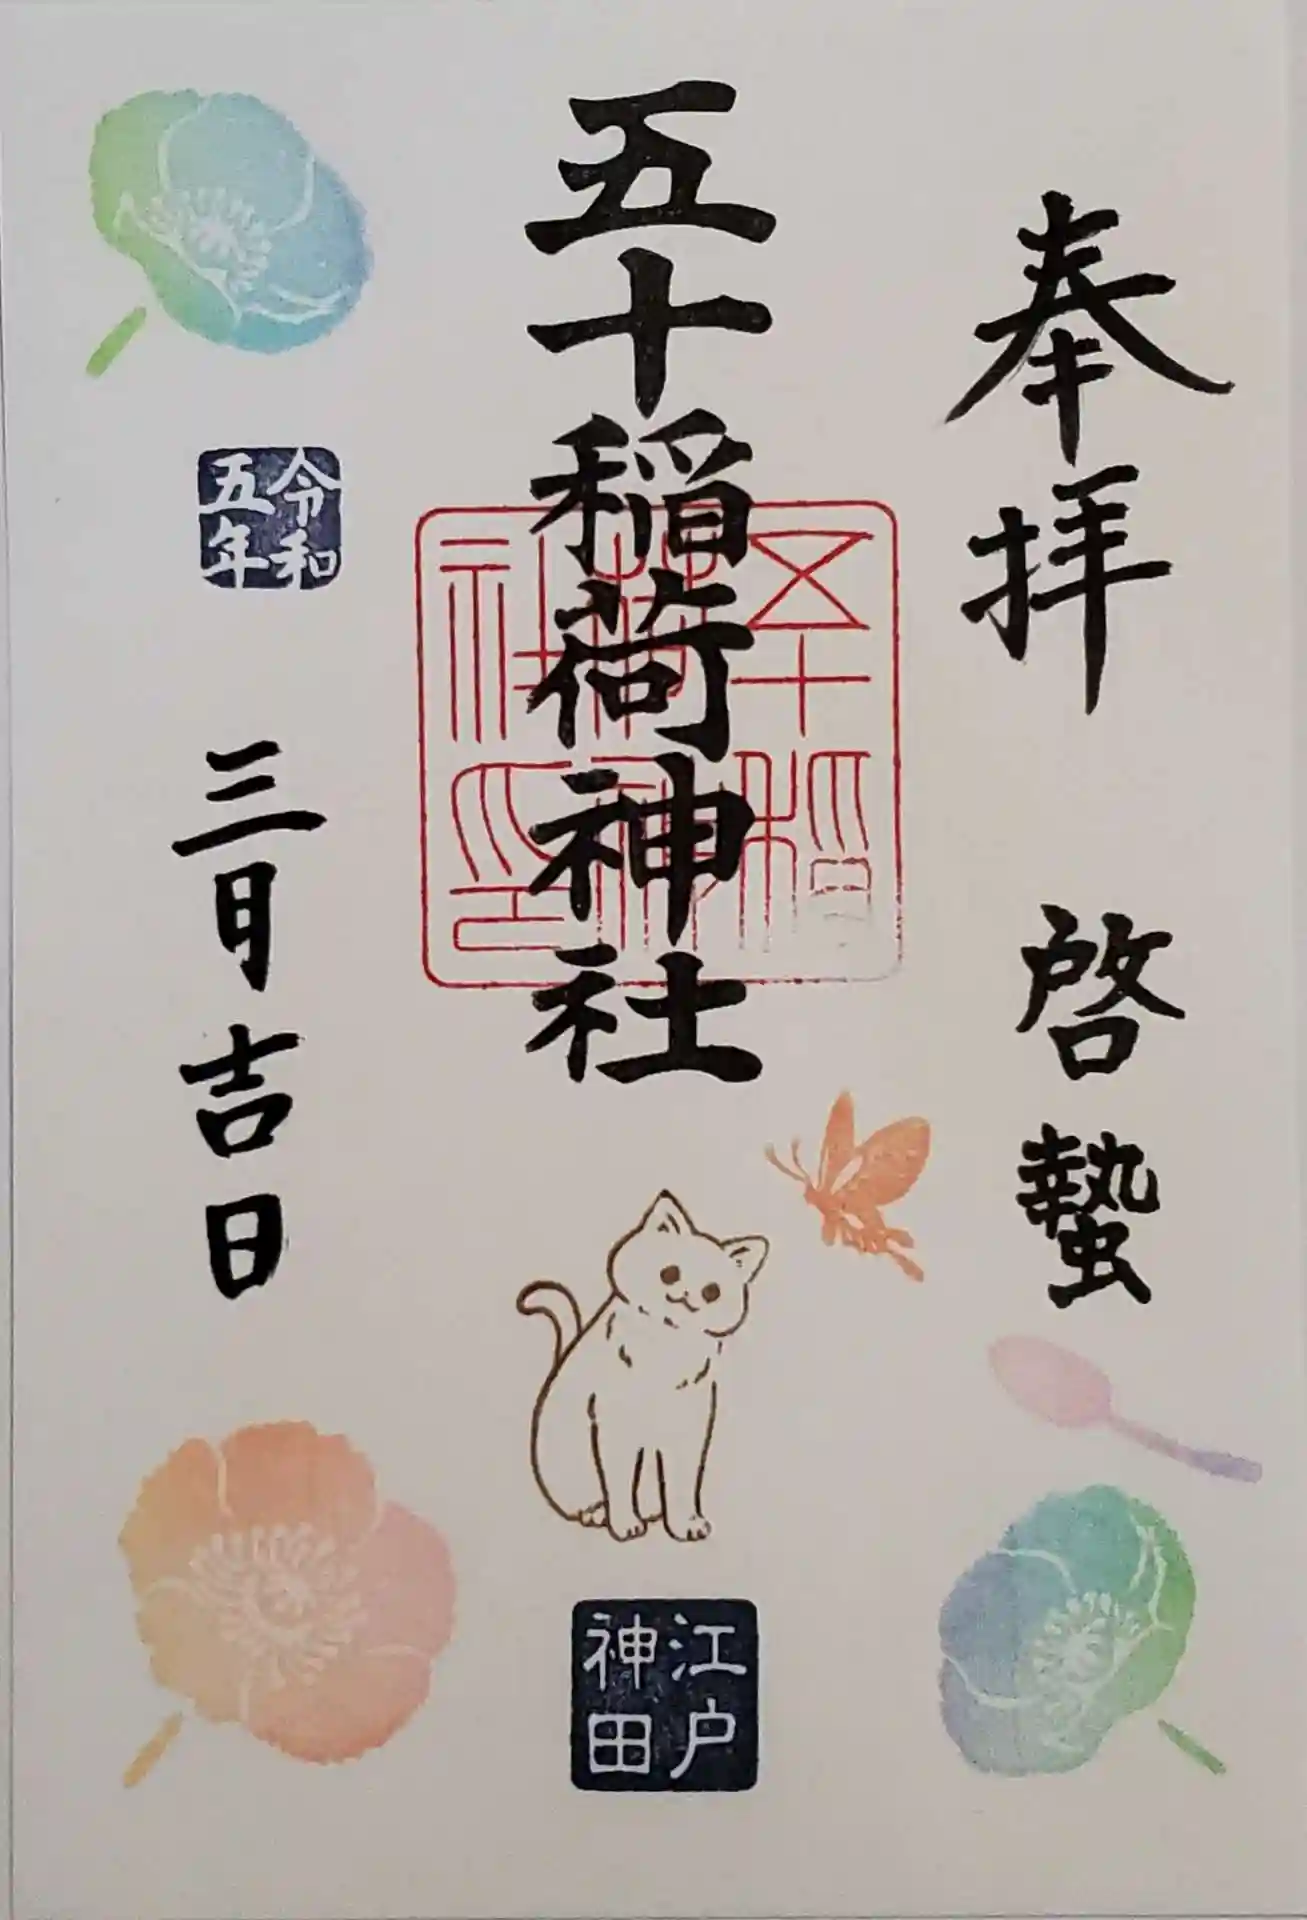 奉拝
啓蟄
五十稲荷神社
五十稲
荷神
社印
令和
五年
三月吉日
江戸
神田